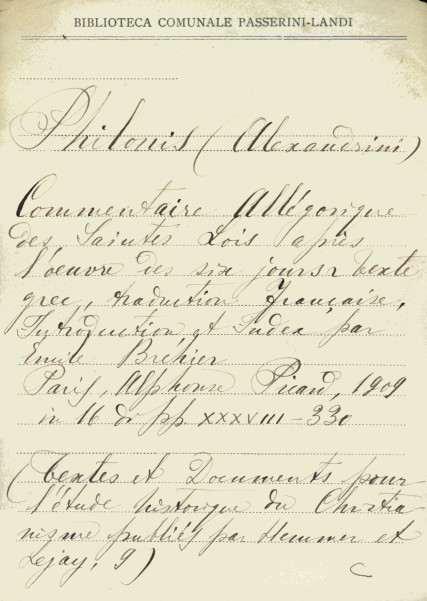 BIBLIOTECA COMUNALE PASSERINI-LANDI
Philonis (Alexandrini)
Commentaire Allégorique
des Saintes Lois après
l'oeuvre des six jours texte
grec, traduction française,
Introduction et Index par
Emile Bréhier
Paris, Alphonse Picard, 1909
in 16 pp. XXXVIII-330
(Textes et Documents pour
l'étude historique du Christia
nisme publiés par Hemmer et
Lejay, 9)